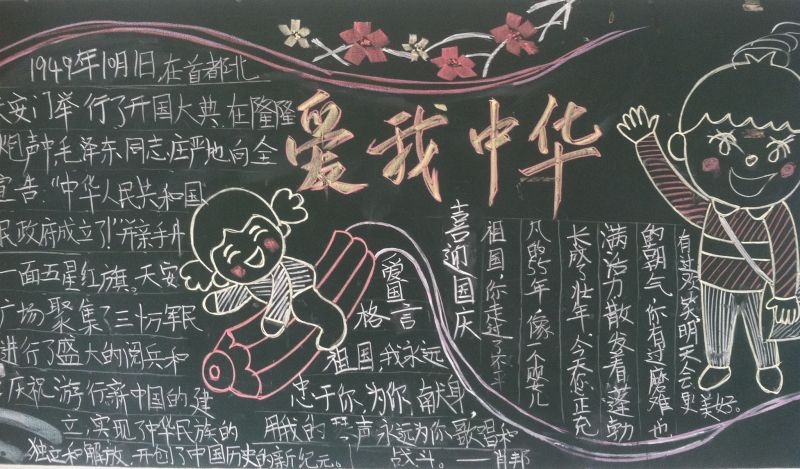 爱我中华
1949年10月1日,在首都北
天安门举行了开国大典,在隆隆
炮声中,毛泽东同志庄严地向全
宣告:“中华人民共和国
民政府成立了!”并亲手升
一面五星红旗。天安
广场聚集了三十万军民
进行了盛大的阅兵和
庆祝游行新中国的建
立,实现了中华民族的
独立和解放,开创了中国历史的新纪元。
爱国言
格
祖国,我永远
忠于你,为你献身,
用我的 声永远为你歌唱和
战斗。——肖邦
喜迎国庆
祖国,你走过了不平
凡的55年,像个婴儿
长成了壮年,今天你正充
满活力散发着蓬勃
的朝气,你有过磨难也
有过 笑,明天会更美好。